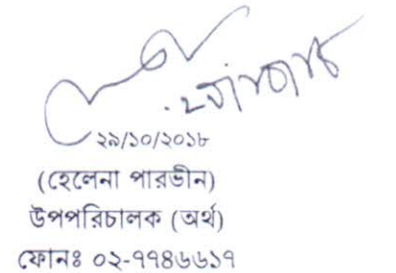 ২৯/১০/২০১৮
(হেলেনা পারভীন)
উপপরিচালক (অর্থ)
ফোনঃ ০২-৭৭৪৬৬১৭